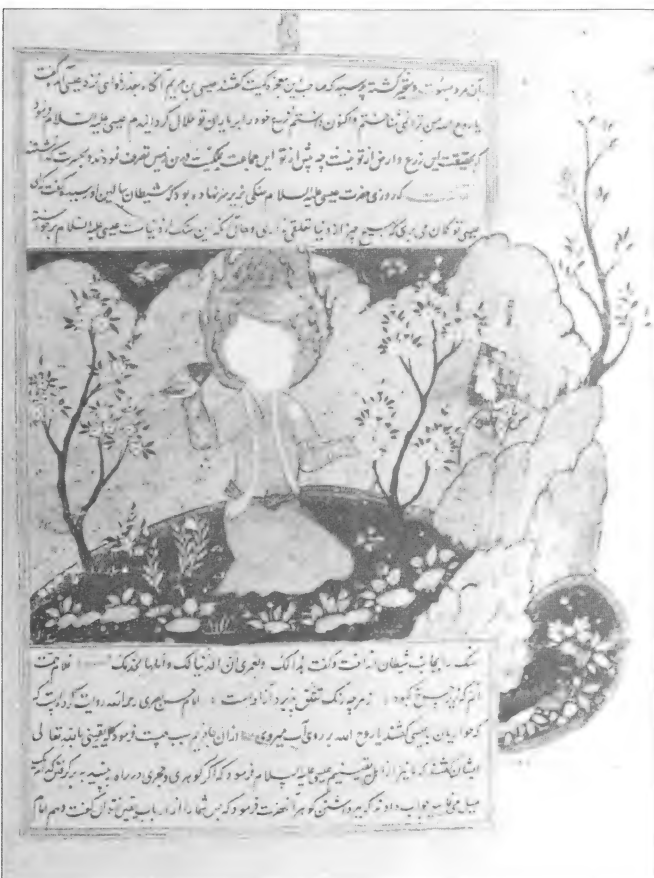 آن مرد متحیر گشته پرسید که صاحب این معجزه کیست گفتند عیسی بن مریم آنگاه بعذرخواهی نزد عیسی آمد گفت
یا روح الله من ترا نمی شناختم واکنون دانستم زرع خود را بر یاران تو حلال گردانیدم عیسی علیه السلام فرمود
که بحقیقت این زرع و ارض از تو نیست چه پیش از تو این جماعت بملکیت درین زمین تصرف نمودند و بحسرت گذاشتند
که روزی حضرت عیسی علیه السلام سنکی زیر سر نهاده بود که شیطان ببالین او رسید و گفت که ای
عیسی تو کمان می بری که بهیچ چیز از دنیا تعلقی نداری و حال آنکه این سنک از دنیاست عیسی علیه السلام برخواست
سنک را بجانب شیطان انداخت و گفت هذا لک ولعمری ان الدنیا لک غلام همت
آنم که زیر چرخ کبود ز هر چه رنک تعلق پذیرد آزادست امام حسن بصری رحمه الله روایت کرده است که
که حواریان بعیسی گفتند یا روح الله بر روی آب میروی سبب چیست فرمود که یقینی بالله تعالی
ایشان گفتند که ما نیز از اهل یقینیم عیسی علیه السلام فرمود که اگر کوهری و حجری در راه بینید به برگرفتن کدام
میل جواب دادند که برداشتن کوهر آنحضرت فرمود که پس شما را از ارباب یقین نتوان گفت و هم امام